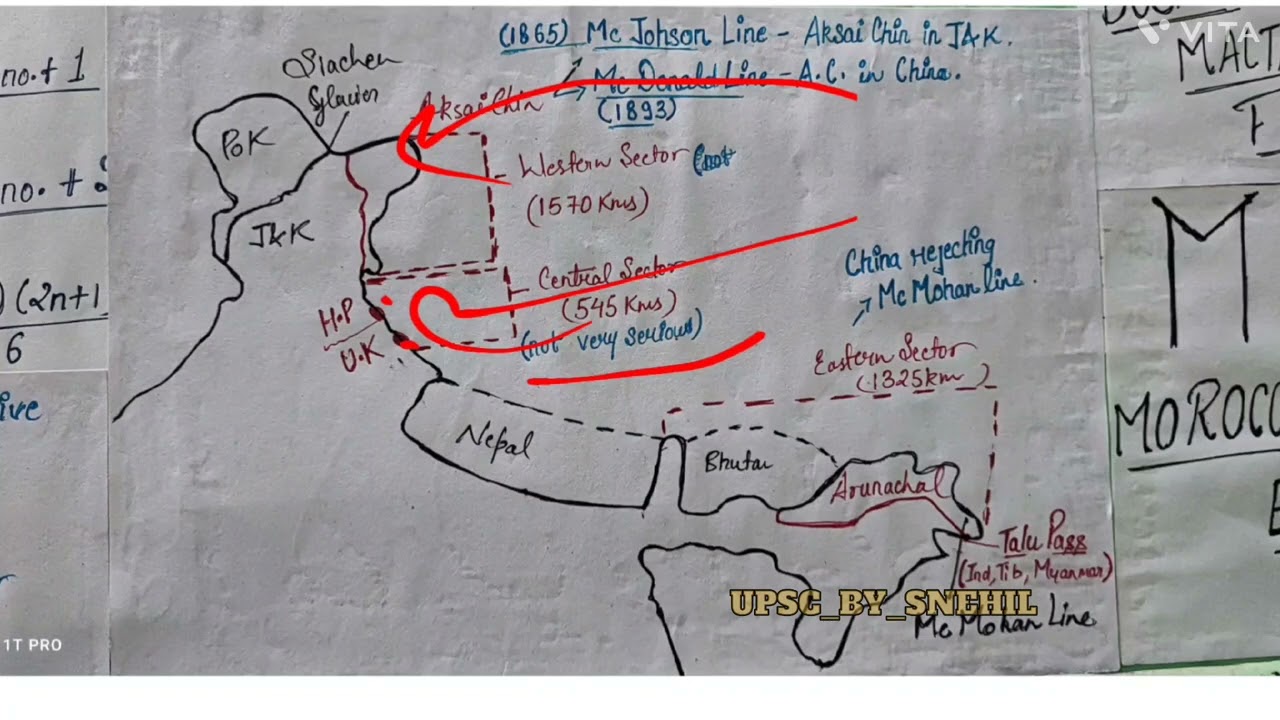 no.+ 1
no. +
(2n+1
6
ive
1T PRO
(1865) Mc Johson Line - Aksai Chin in J&K.
Mc Donald Line - A.C. in China.
(1893)
Siachen
Glacier
Aksai Chin
PoK
J&K
Western Sector (not
(1570 Kms)
Central Sector
(545 Kms)
(not very serious)
H.P
U.K
China rejecting
Mc Mohan line.
Eastern Sector
(1325km)
Nepal
Bhutan
Arunachal
Talu Pass
(Ind, Tib, Myanmar)
UPSC_BY_SNEHIL
Mc Mohan Line
VITA
MALT
MOROCC